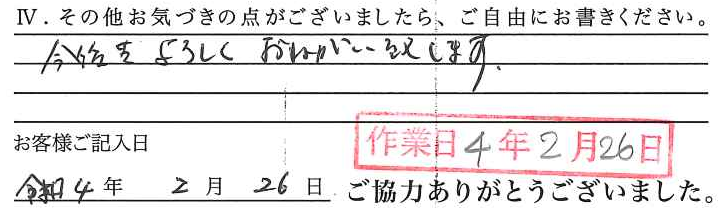 Ⅳ．その他お気づきの点がございましたら、ご自由にお書きください。
今後もよろしくおねがい致します。
お客様ご記入日
作業日4年2月26日
令和4年 2月 26日
ご協力ありがとうございました。